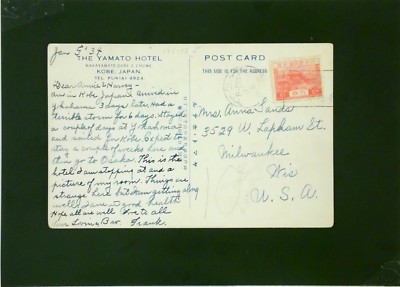 Jan 5 '34
THE YAMATO HOTEL
KOBE, JAPAN.
Dear Annie & Harvey -
am in Kobe Japan arrived in
Yokohama 3 days late. Had a
terrible storm for 6 days. Stayed
a couple of days at Yokohama
and sailed for Kobe. Expect to
stay a couple of weeks here and
then go to Osaka. This is the
hotel I am stopping at and a
picture of my room. Things are
strange here but I am getting along
well. I am in good health
Hope all are well Love to all
Your Loving Bro. Frank.
POST CARD
THIS SIDE IS FOR THE ADDRESS
Mrs. Anna Sands
3529 W. Lapham St.
Milwaukee
Wis
U. S. A.